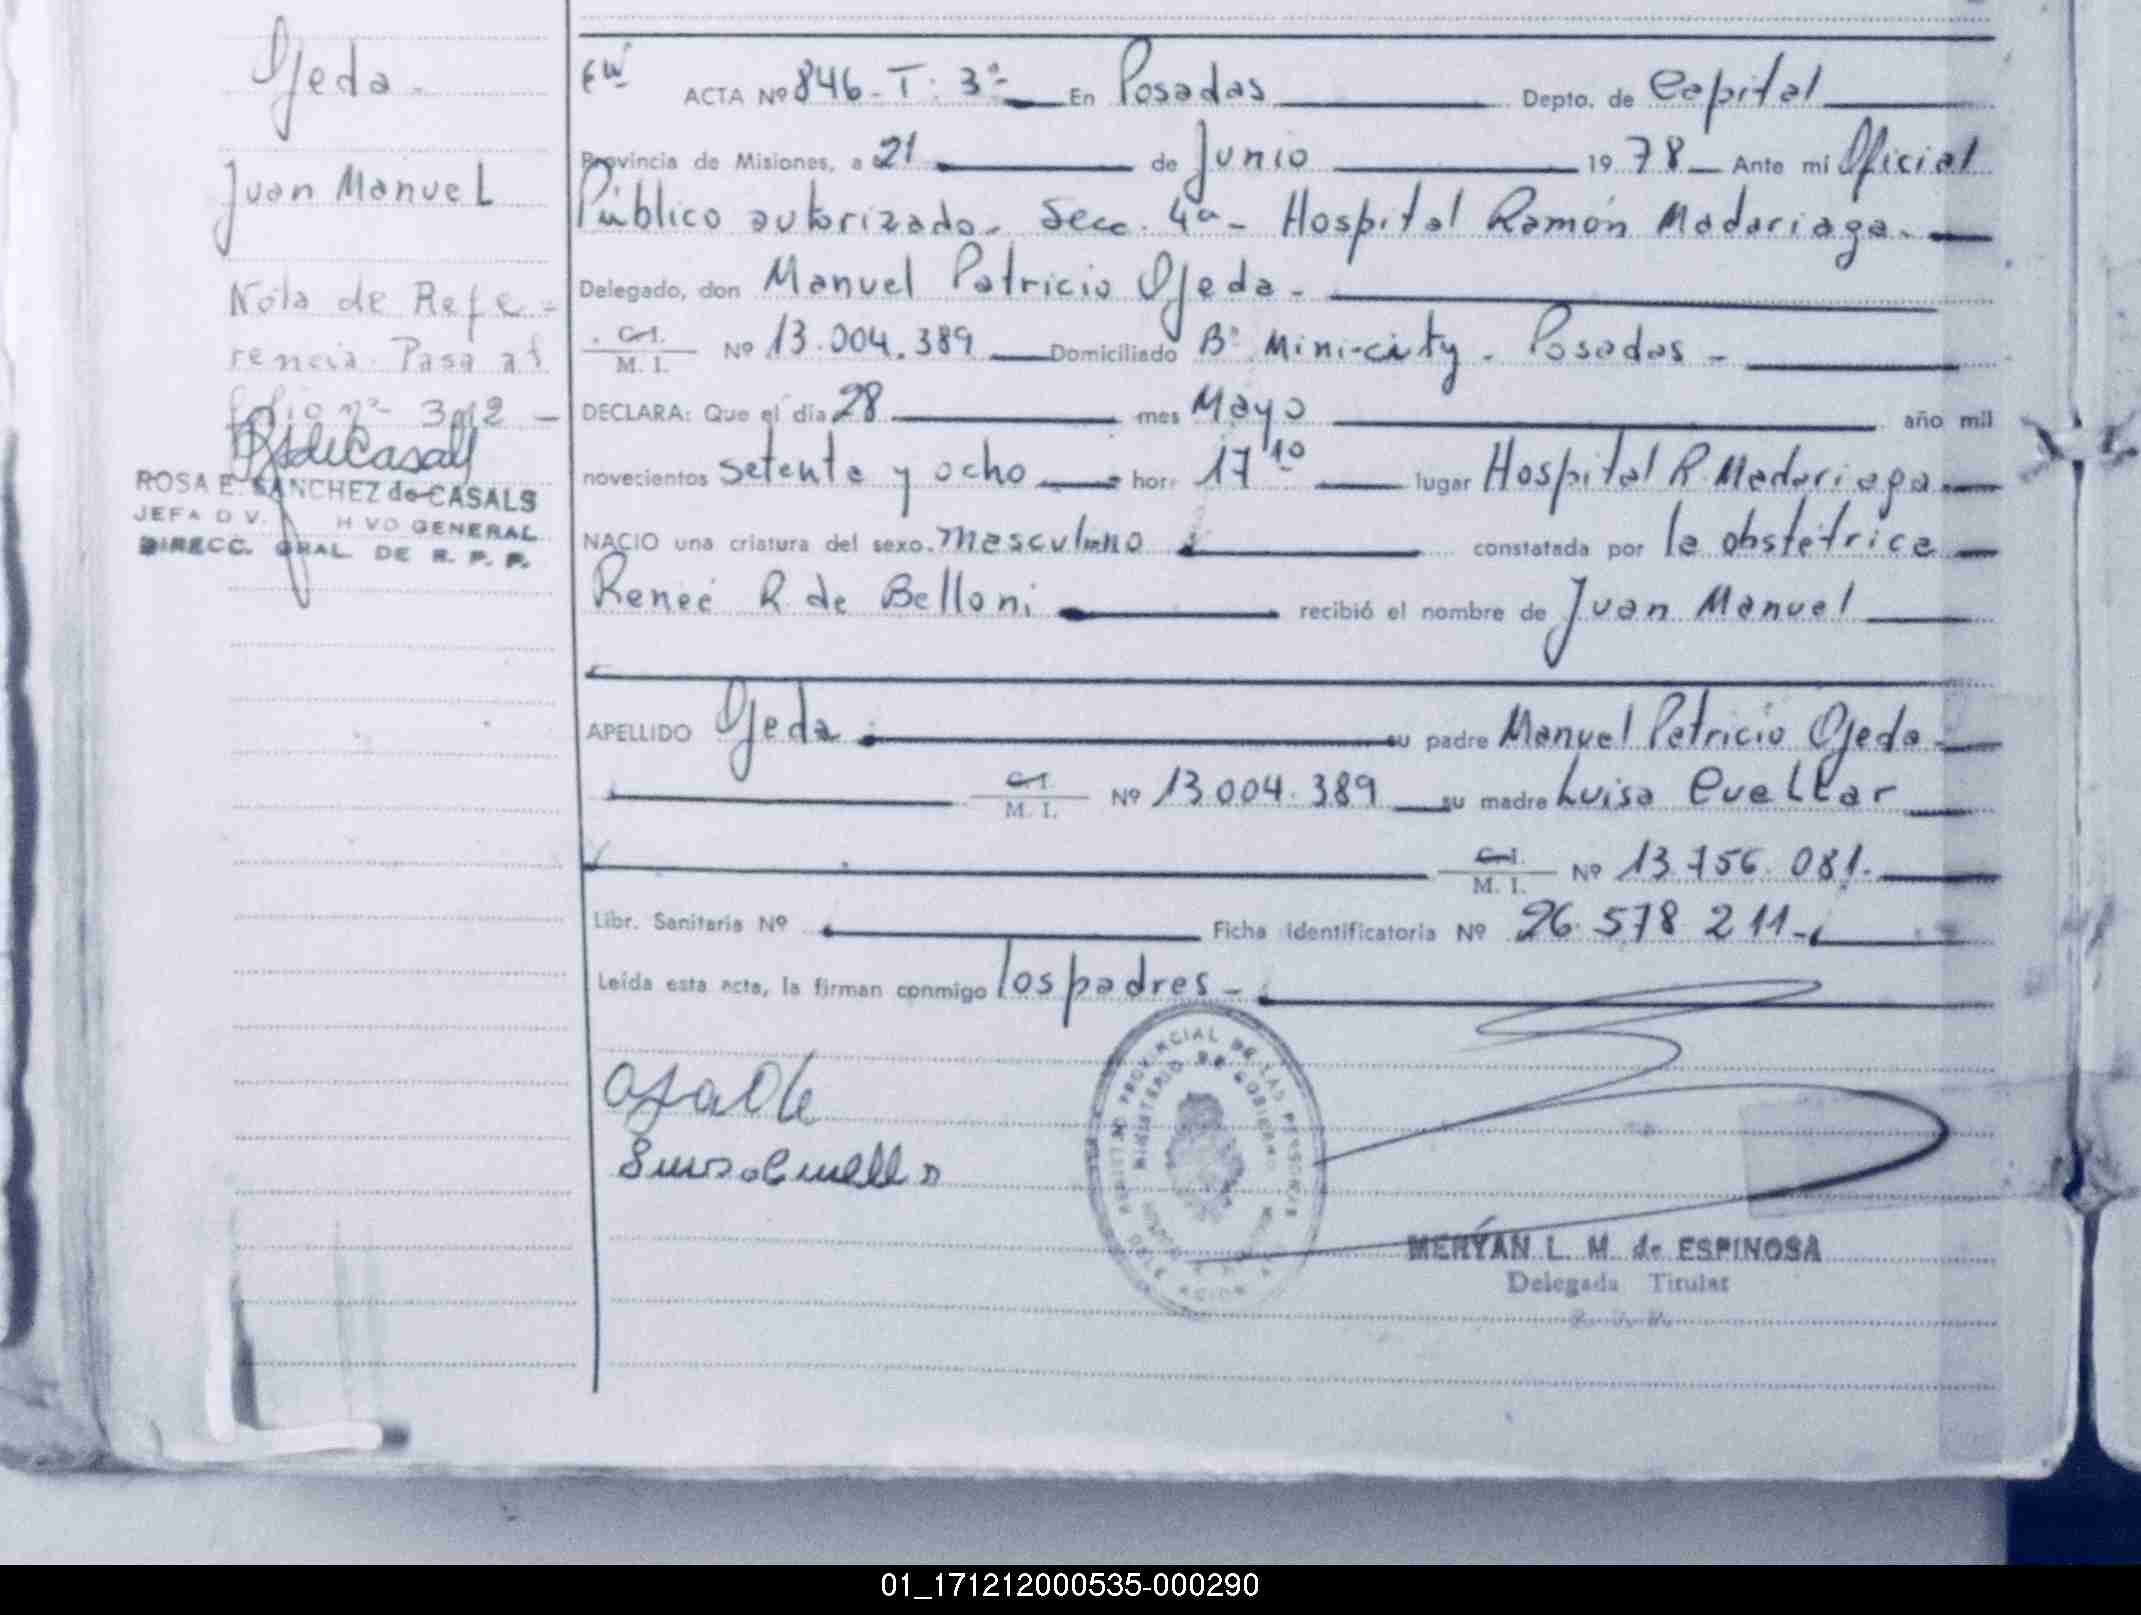 Ojeda.
Juan Manuel
Nota de Refe-
rencia. Pasa al
folio nº 302 -
ROSA E. SANCHEZ de CASALS
JEFA DIV. GENERAL
DIRECC. GRAL DE R. P. P.
ACTA Nº 846-T. 3º- En Posadas Depto. de Capital
Provincia de Misiones, a 21 de Junio 1978 Ante mí Oficial
Público autorizado. Secc. 4ª - Hospital Ramón Madariaga.
Delegado, don Manuel Patricio Ojeda -
C. I.
M. I. Nº 13.004.389 Domiciliado Bº Mini-city - Posadas -
DECLARA: Que el día 28 mes Mayo año mil
novecientos setenta y ocho hor. 17¹⁰ lugar Hospital R. Madariaga
NACIO una criatura del sexo masculino constatada por la obstétrica
Reneé R de Belloni recibió el nombre de Juan Manuel
APELLIDO Ojeda su padre Manuel Patricio Ojeda
C. I.
M. I. Nº 13.004.389 su madre Luisa Cuellar
C. I.
M. I. Nº 13.756.081.
Libr. Sanitaria Nº Ficha Identificatoria Nº 26.578 211-
Leída esta acta, la firman conmigo los padres -
PROVINCIAL DE LAS PERSONAS
MINISTERIO DE GOBIERNO
MERYAN L. M. de ESPINOSA
Delegada Titular
01_171212000535-000290